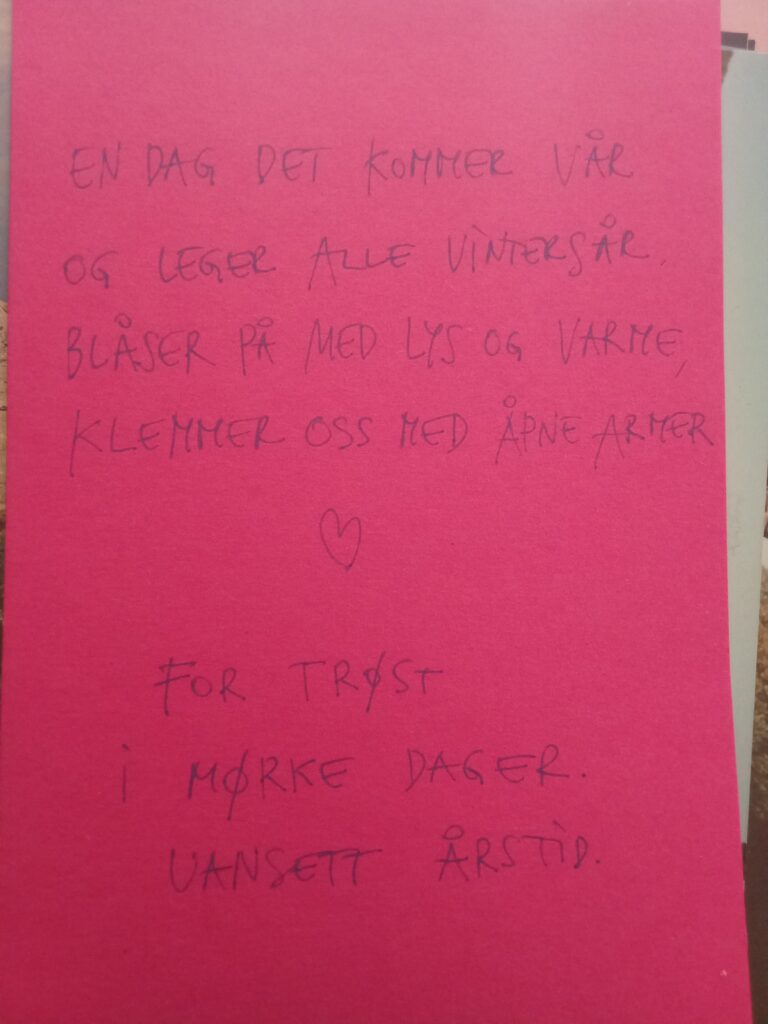 EN DAG DET KOMMER VÅR
OG LEGER ALLE VINTERSÅR.
BLÅSER PÅ MED LYS OG VARME,
KLEMMER OSS MED ÅPNE ARMER
FOR TRØST
i MØRKE DAGER.
UANSETT ÅRSTID.